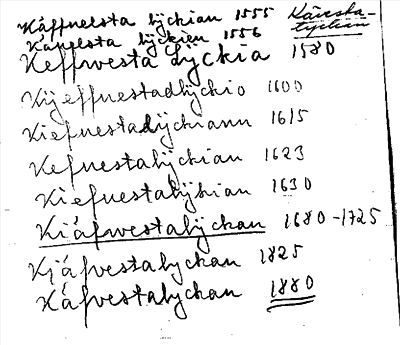 Käffnelsta lÿckian 1555
Känfesta lÿckien 1556
Keffwesta Lÿckia 1580
Kijeffnestadlÿckio 1600
Kiefnestadÿckiann 1615
Kefnestalÿckian 1623
Kiefnestalÿkian 1630
Kiäfwestalÿckan 1680-1725
Kjäfvestalyckan 1825
Käfvestalyckan 1880